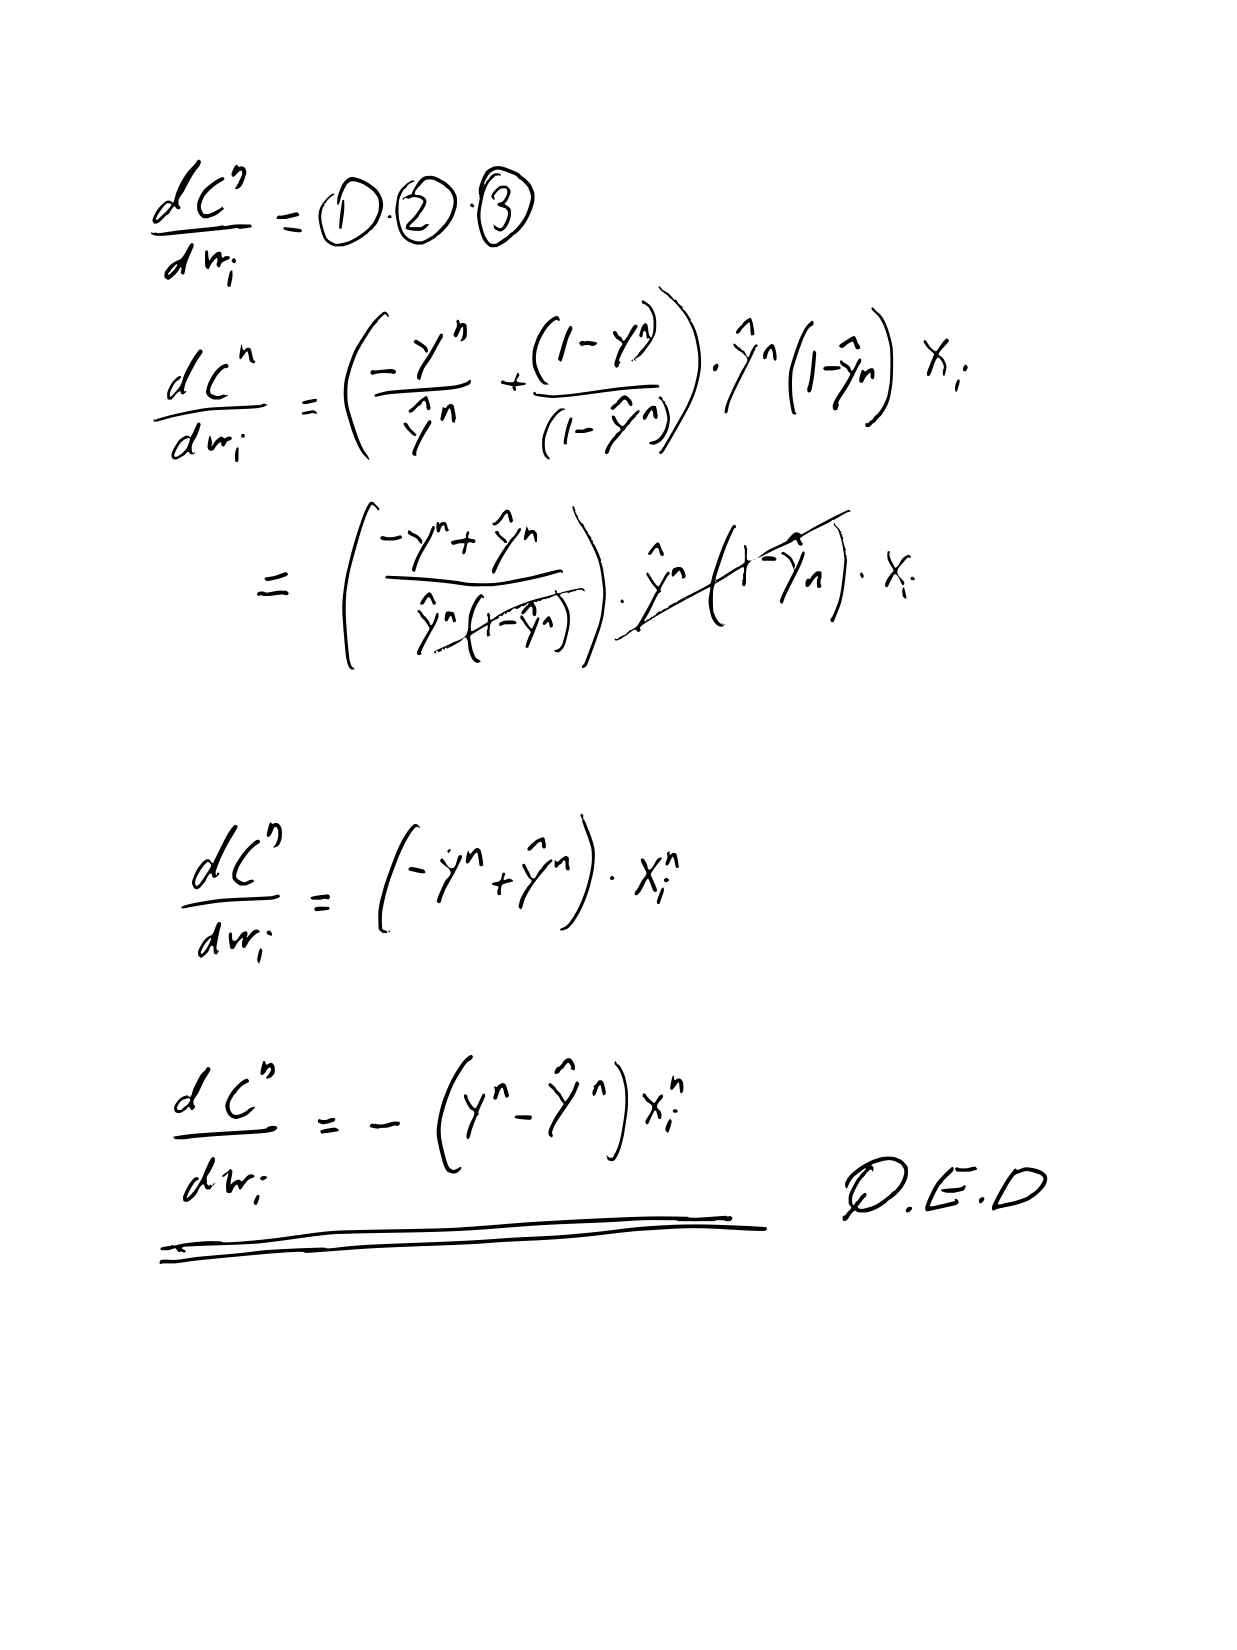 dCⁿ/dwᵢ = ①·②·③
dCⁿ/dwᵢ = (-yⁿ/ŷⁿ + (1-yⁿ)/(1-ŷⁿ)) · ŷⁿ(1-ŷⁿ) xᵢ
= ((-yⁿ + ŷⁿ)/(ŷⁿ(1-ŷⁿ))) · ŷⁿ(1-ŷⁿ) · xᵢ
dCⁿ/dwᵢ = (-yⁿ + ŷⁿ) · xᵢⁿ
dCⁿ/dwᵢ = - (yⁿ - ŷⁿ) xᵢⁿ
Q.E.D